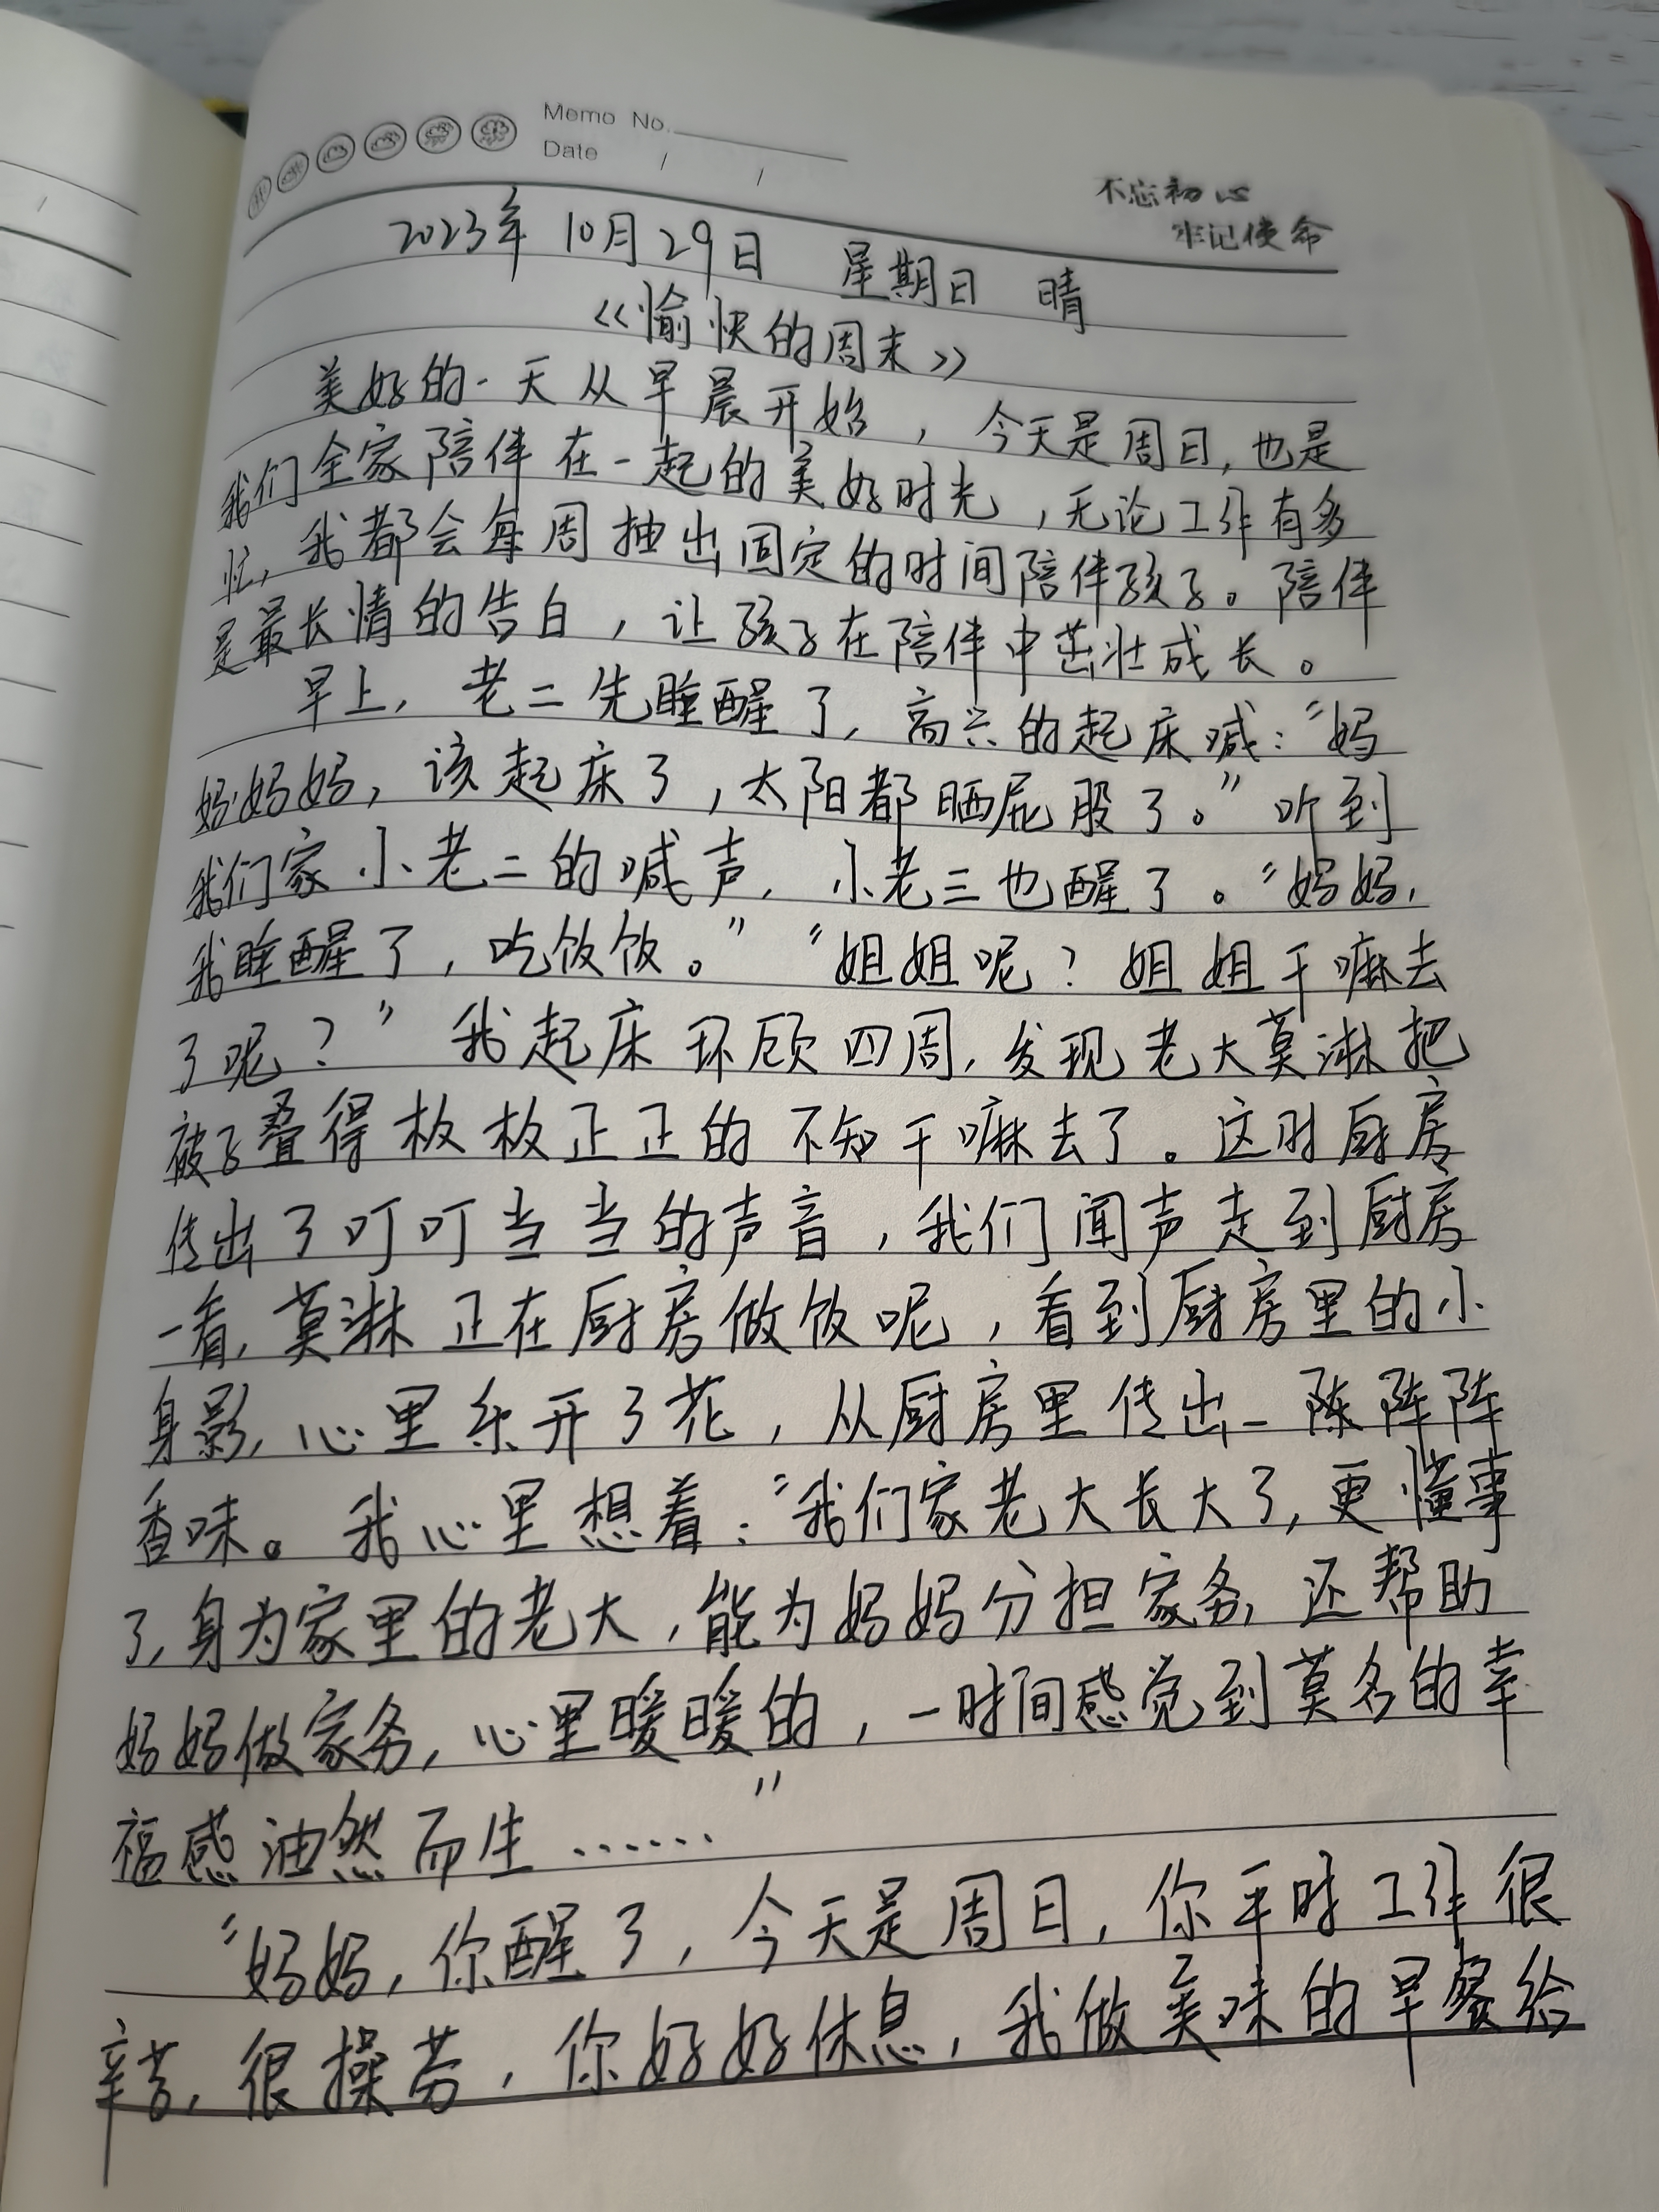 Memo No.
Date / /
不忘初心
牢记使命
2023年10月29日 星期日 晴
《愉快的周末》
美好的一天从早晨开始，今天是周日，也是
我们全家陪伴在一起的美好时光，无论工作有多
忙，我都会每周抽出固定的时间陪伴孩子。陪伴
是最长情的告白，让孩子在陪伴中茁壮成长。
早上，老二先睡醒了，高兴的起床喊：“妈
妈妈妈，该起床了，太阳都晒屁股了。”听到
我们家小老二的喊声，小老三也醒了。“妈妈，
我睡醒了，吃饭饭。”“姐姐呢？姐姐干嘛去
了呢？”我起床环顾四周，发现老大莫淋把
被子叠得板板正正的不知干嘛去了。这时厨房
传出了叮叮当当的声音，我们闻声走到厨房
一看，莫淋正在厨房做饭呢，看到厨房里的小
身影，心里乐开了花，从厨房里传出一阵阵阵
香味。我心里想着：“我们家老大长大了，更懂事
了，身为家里的老大，能为妈妈分担家务，还帮助
妈妈做家务，心里暖暖的，一时间感觉到莫名的幸
福感油然而生……”
“妈妈，你醒了，今天是周日，你平时工作很
辛苦，很操劳，你好好休息，我做美味的早餐给